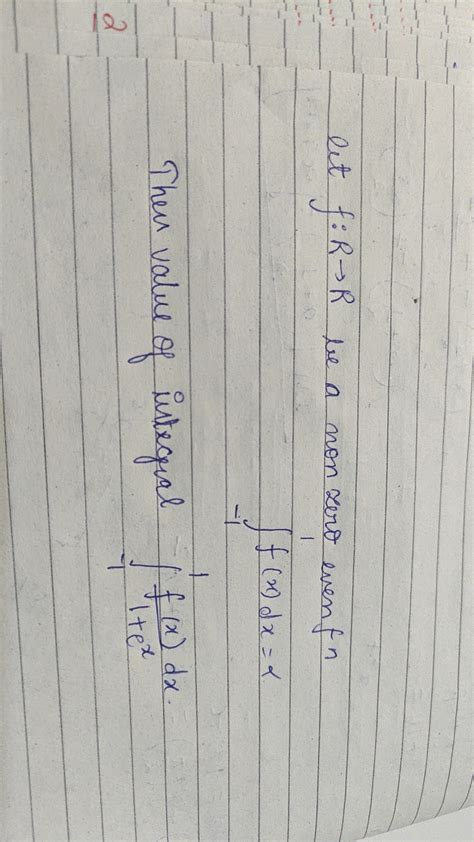 let f: R→R be a non zero even fn
∫₋₁¹ f(x) dx = α
Then value of integral ∫₋₁¹ f(x)/(1+eˣ) dx.
2